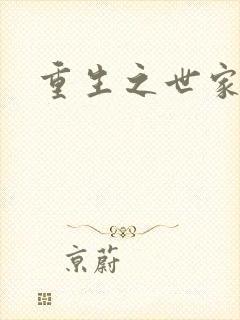 重生之世家
京蔚